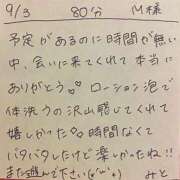 9/3 80分 M様
予定があるのに時間が無い
中、会いに来てくれて本当に
ありがとう♡♡ローション泡で
体洗うの沢山感じてくれて
嬉しかった♡♡時間なくて
バタバタしたけど楽しかったね!!
また遊んで下さい(*'ω'*) みと